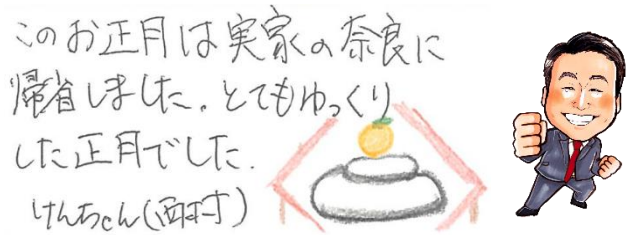 このお正月は実家の奈良に
帰省しました。とてもゆっくり
した正月でした.
けんちゃん(西村)